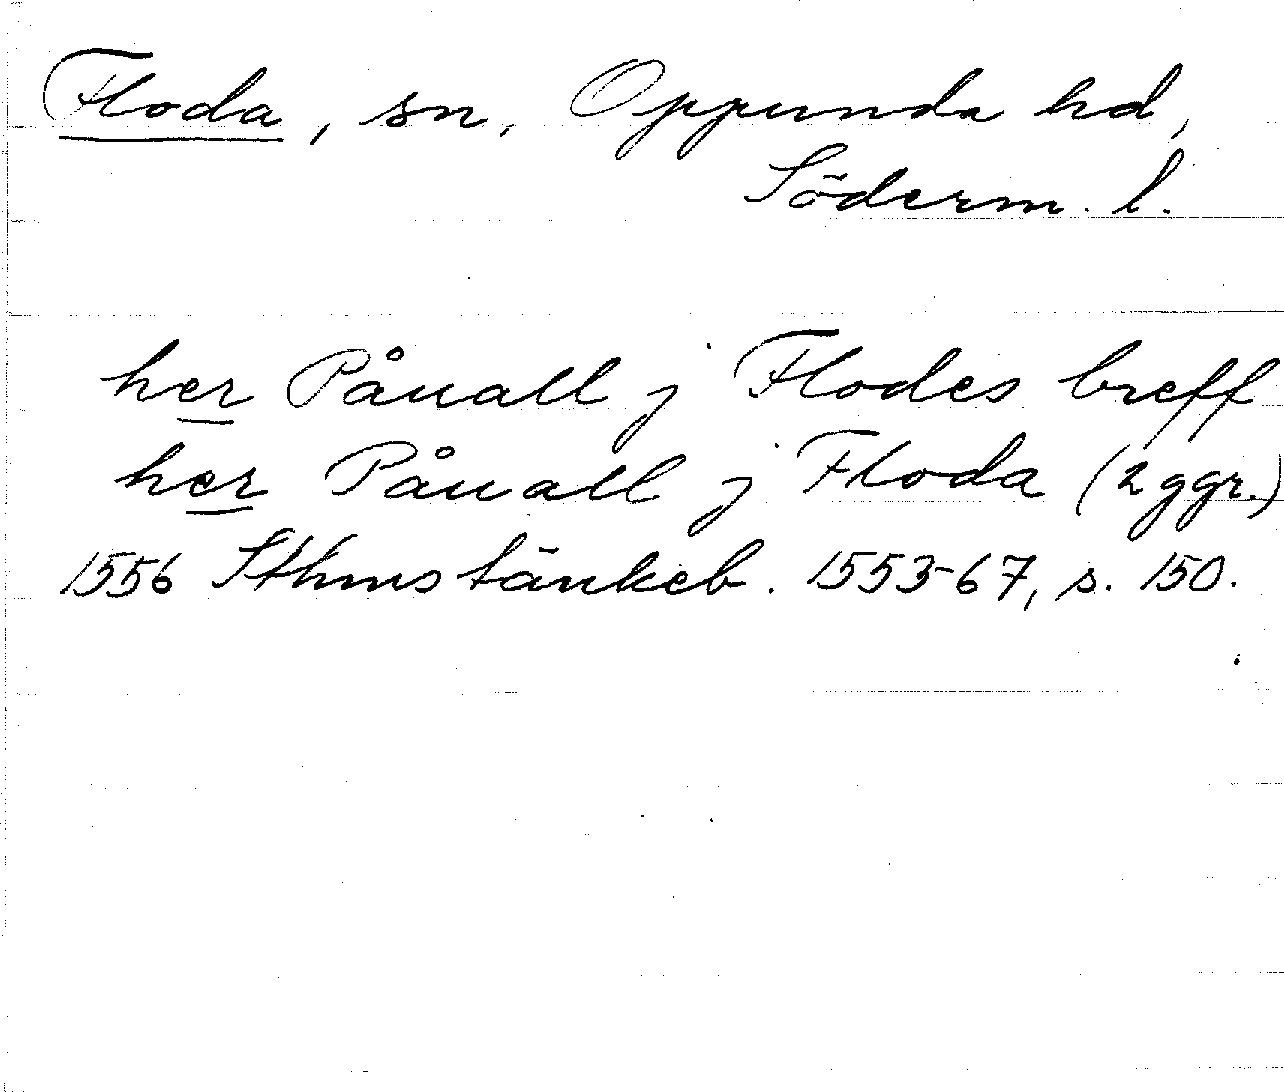 Floda, sn, Oppunda hd,
Söderm. l.
her Påuall j Flodes breff
her Påuall j Floda (2 ggr.)
1556 Sthms tänkeb. 1553-67, s. 150.